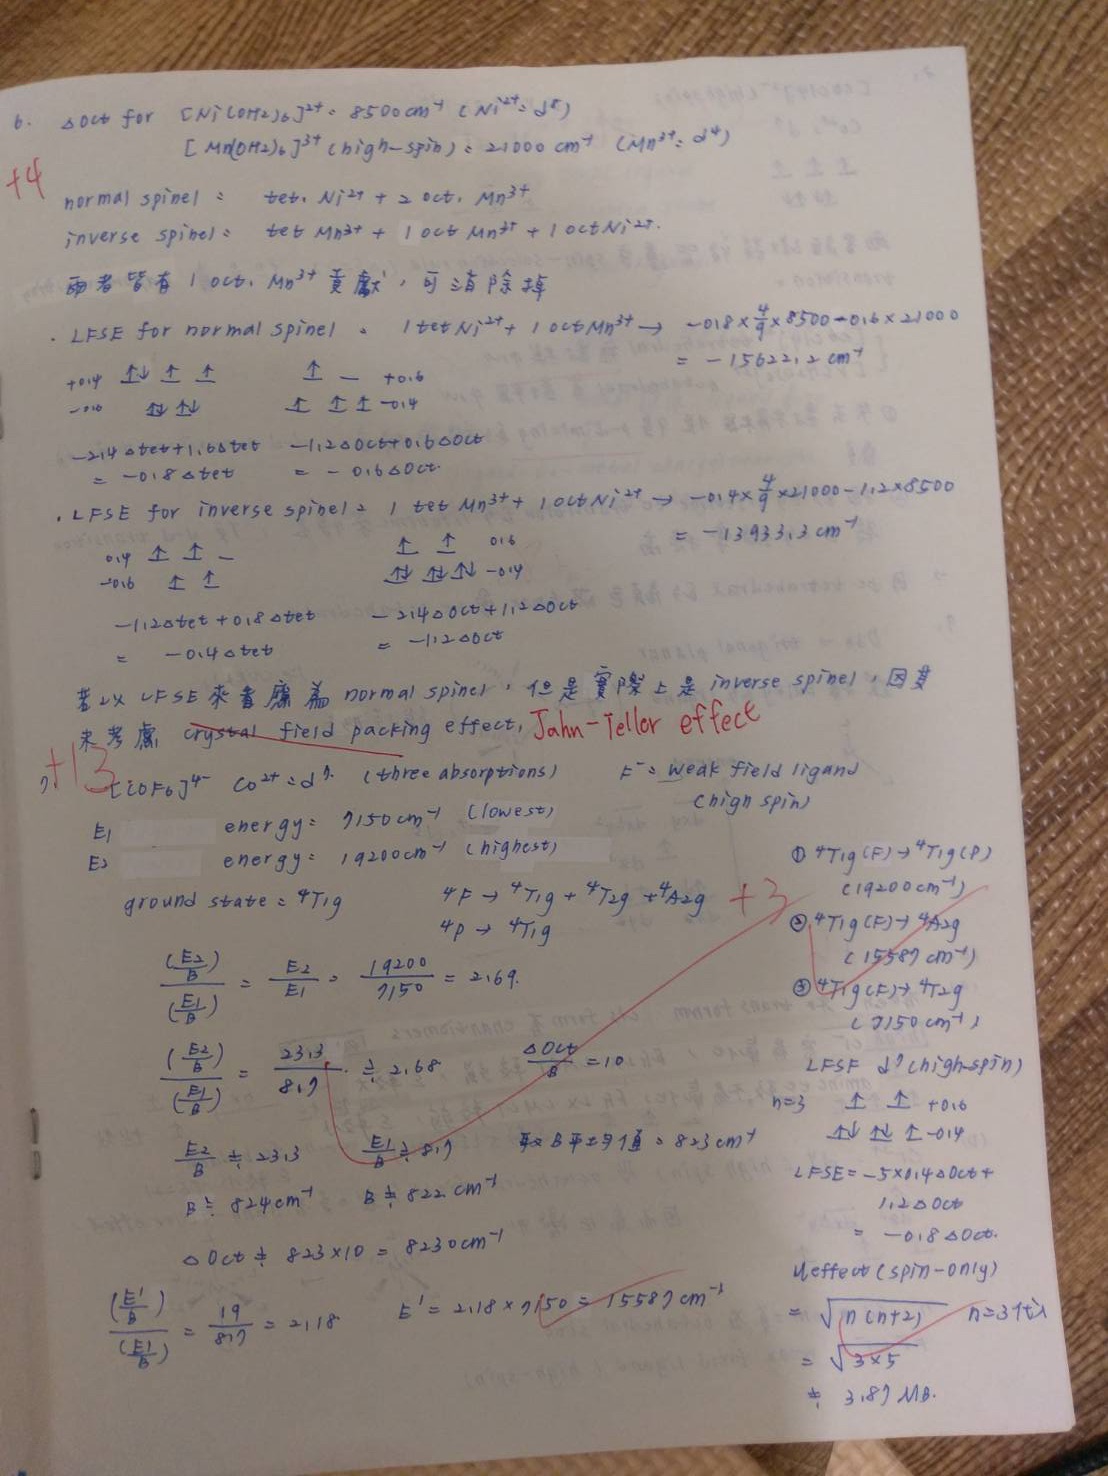 6. △oct for [Ni(OH2)6]²⁺ = 8500cm⁻¹ (Ni²⁺: d⁸)
[Mn(OH2)6]³⁺ (high-spin) = 21000 cm⁻¹ (Mn³⁺: d⁴)
+4
normal spinel : tet. Ni²⁺ + 2 oct. Mn³⁺
inverse spinel: tet Mn³⁺ + 1 oct Mn³⁺ + 1 oct Ni²⁺.
兩者皆有 1 oct. Mn³⁺ 貢獻, 可消除掉
. LFSE for normal spinel = 1 tet Ni²⁺ + 1 oct Mn³⁺ → -0.8 × 4/9 × 8500 - 0.6 × 21000
= -15622.2 cm⁻¹
+0.4 ↑↓ ↑ ↑ ↑ — +0.6
-0.6 ↑↓ ↑↓ ↑ ↑ ↑ -0.4
-2.4 △tet + 1.6 △tet -1.2 △oct + 0.6 △oct
= -0.8 △tet = -0.6 △oct.
. LFSE for inverse spinel = 1 tet Mn³⁺ + 1 oct Ni²⁺ → -0.4 × 4/9 × 21000 - 1.2 × 8500
= -13933.3 cm⁻¹
0.4 ↑ ↑ — ↑ ↑ 0.6
-0.6 ↑ ↑ ↑↓ ↑↓ ↑↓ -0.4
-1.2 △tet + 0.8 △tet -2.4 △oct + 1.2 △oct
= -0.4 △tet = -1.2 △oct
若以 LFSE 來考慮為 normal spinel, 但是實際上是 inverse spinel, 因其
未考慮 crystal field packing effect, Jahn-Tellor effect
+13
7. [CoF6]⁴⁻ Co²⁺ = d⁷ (three absorptions) F⁻ = weak field ligand
(high spin)
E1 energy = 7150cm⁻¹ (lowest)
E2 energy = 19200cm⁻¹ (highest)
ground state = ⁴T1g ⁴F → ⁴T1g + ⁴T2g + ⁴A2g +3
⁴P → ⁴T1g
(E2/B)/(E1/B) = E2/E1 = 19200/7150 = 2.69.
(E2/B)/(E1/B) = 23.3/8.7 ≒ 2.68 △oct/B = 10
E2/B ≒ 23.3 E1/B ≒ 8.7 取 B 平均值 = 823cm⁻¹
B ≒ 824cm⁻¹ B ≒ 822 cm⁻¹
△oct ≒ 823 × 10 = 8230cm⁻¹
(E'/B)/(E1/B) = 19/8.7 = 2.18 E' = 2.18 × 7150 = 15587 cm⁻¹
① ⁴T1g(F) → ⁴T1g(P)
(19200cm⁻¹)
② ⁴T1g(F) → ⁴A2g
(15587 cm⁻¹)
③ ⁴T1g(F) → ⁴T2g
(7150cm⁻¹)
LFSE d⁷ (high-spin)
n=3 ↑ ↑ +0.6
↑↓ ↑↓ ↑ -0.4
LFSE = -5×0.4△oct +
1.2△oct
= -0.8△oct.
μeffect (spin-only)
= √n(n+2) n=3代入
= √3×5
≒ 3.87 MB.